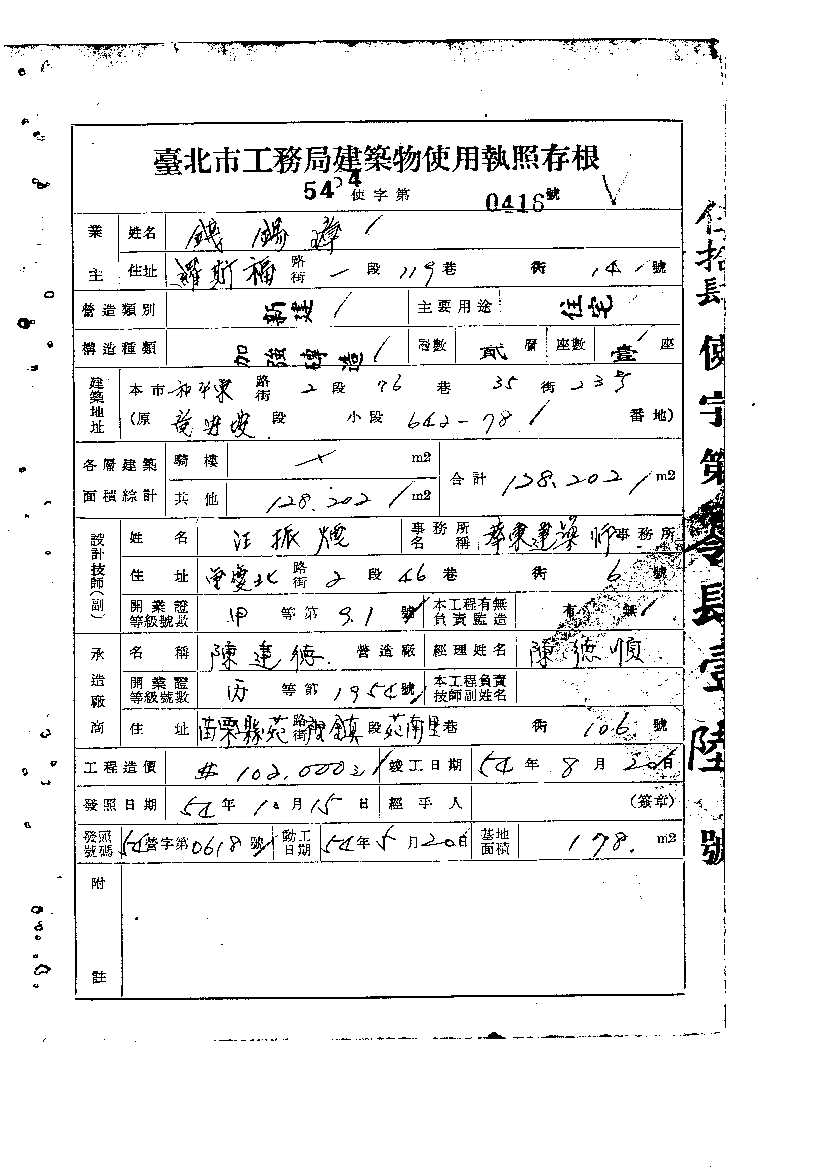 臺北市工務局建築物使用執照存根
54 使字第 0416號
業主 姓名 錫
住址 羅斯福 路街 一段 119巷 街 14 號
營造類別 新建 主要用途 住宅
構造種類 加強磚造 層數 貳層 座數 壹座
建築地址 本市 和平東 路街 2段 76巷 35街 23號
(原 龍安坡 段 小段 642-78 番地)
各層建築面積綜計 騎樓 m2 合計 128.202 m2
其他 128.202 m2
設計技師(副) 姓名 汪振 事務所名稱 華東建築師事務所
住址 重慶北 路街 2段 46巷 街 6號
開業證等級號數 甲等第 91號 本工程有無負責監造 有 無
承造廠商 名稱 陳建德 營造廠 經理姓名 陳德順
開業證等級號數 丙等第 1954號 本工程負責技師副姓名
住址 苗栗縣苑裡鎮 路街 段 苑南里 巷 街 106號
工程造價 102,000 竣工日期 54年8月20日
發照日期 54年10月15日 經手人 (簽章)
發照號碼 54營字第0618號 動工日期 54年5月20日 基地面積 178. m2
附註
伍拾肆使字第零肆壹陸號